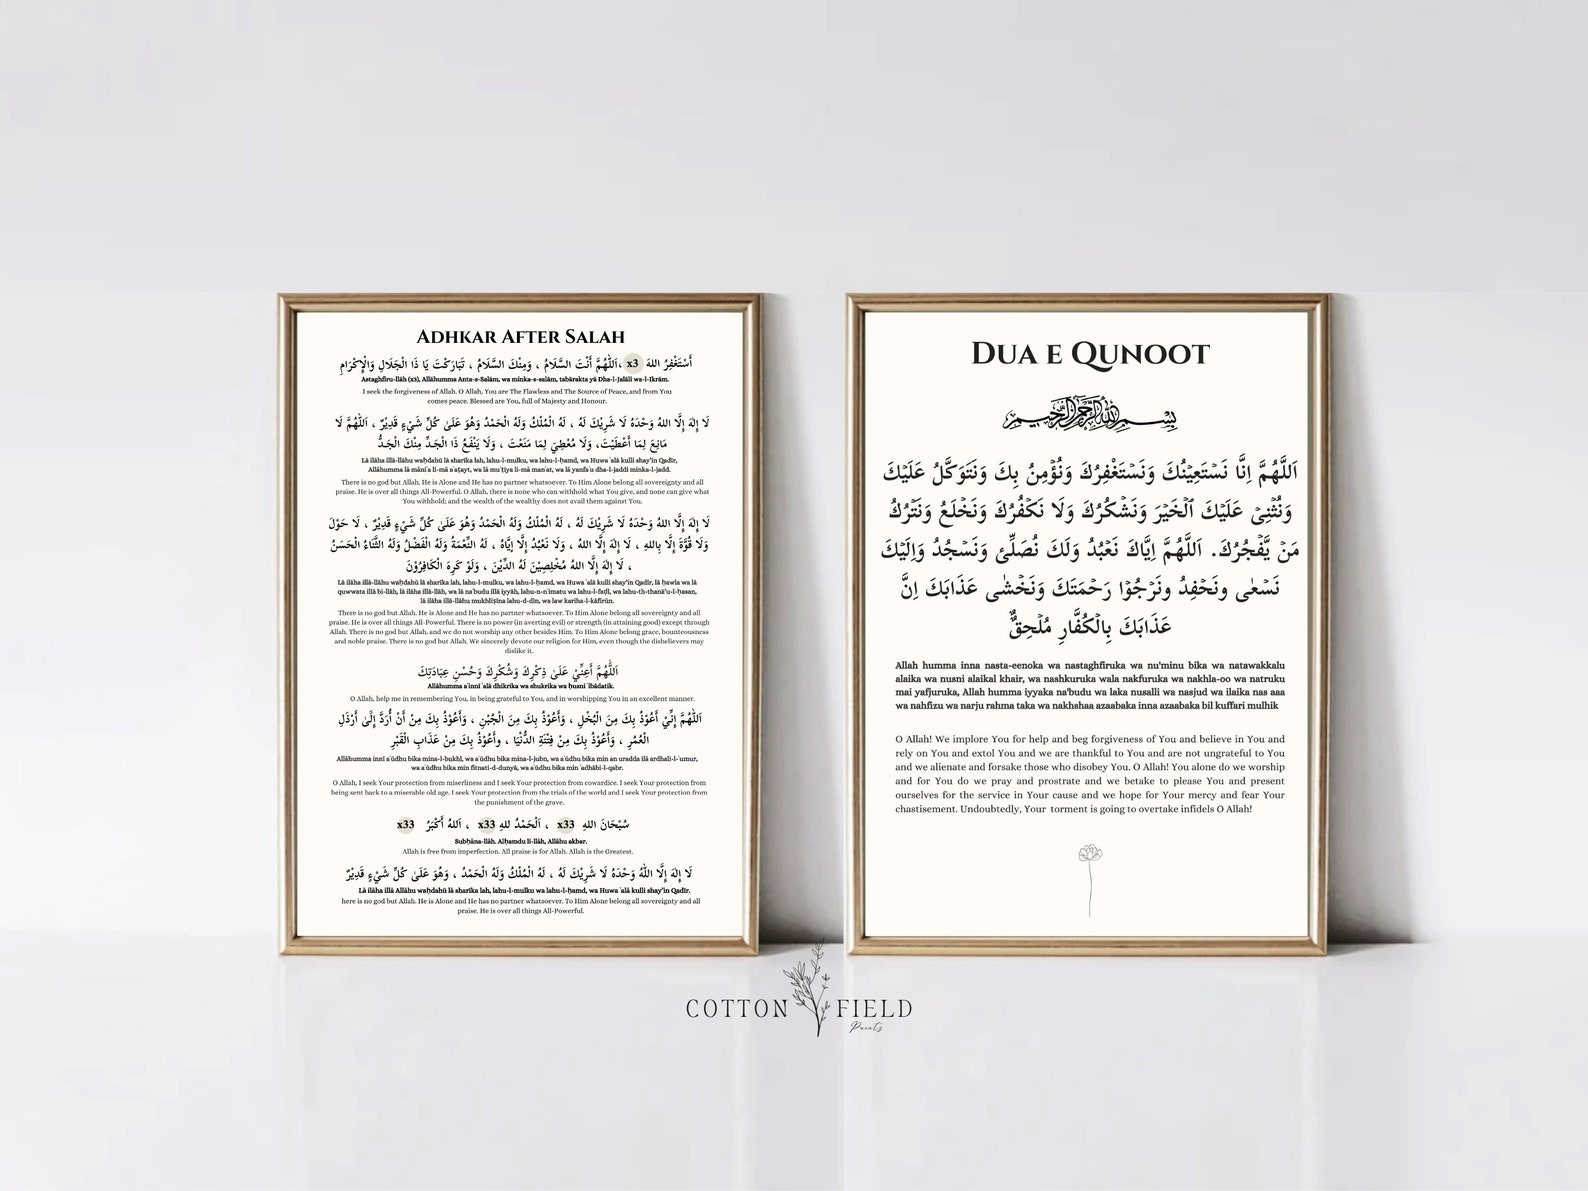 ADHKAR AFTER SALAH
أَسْتَغْفِرُ اللهَ x3 ،اَللّٰهُمَّ أَنْتَ السَّلَامُ ، وَمِنْكَ السَّلَامُ ، تَبَارَكْتَ يَا ذَا الْجَلَالِ وَالْإِكْرَامِ
Astaghfiru-llāh (x3), Allāhumma Anta-s-Salām, wa minka-s-salām, tabārakta yā Dha-l-Jalāli wa-l-Ikrām.
I seek the forgiveness of Allah. O Allah, You are The Flawless and The Source of Peace, and from You
comes peace. Blessed are You, full of Majesty and Honour.
لَا إِلٰهَ إِلَّا اللهُ وَحْدَهُ لَا شَرِيْكَ لَهُ ، لَهُ الْمُلْكُ وَلَهُ الْحَمْدُ وَهُوَ عَلَىٰ كُلِّ شَيْءٍ قَدِيْرٌ ، اَللّٰهُمَّ لَا
مَانِعَ لِمَا أَعْطَيْتَ، وَلَا مُعْطِيَ لِمَا مَنَعْتَ ، وَلَا يَنْفَعُ ذَا الْجَدِّ مِنْكَ الْجَدُّ
Lā ilāha illā-llāhu waḥdahū lā sharīka lah, lahu-l-mulku, wa lahu-l-ḥamd, wa Huwa ʿalā kulli shay'in Qadīr,
Allāhumma lā māniʿa li-mā aʿṭayt, wa lā muʿṭiya li-mā manʿat, wa lā yanfaʿu dha-l-jaddi minka-l-jadd.
There is no god but Allah. He is Alone and He has no partner whatsoever. To Him Alone belong all sovereignty and all
praise. He is over all things All-Powerful. O Allah, there is none who can withhold what You give, and none can give what
You withhold; and the wealth of the wealthy does not avail them against You.
لَا إِلٰهَ إِلَّا اللهُ وَحْدَهُ لَا شَرِيْكَ لَهُ ، لَهُ الْمُلْكُ وَلَهُ الْحَمْدُ وَهُوَ عَلَىٰ كُلِّ شَيْءٍ قَدِيْرٌ ، لَا حَوْلَ
وَلَا قُوَّةَ إِلَّا بِاللهِ ، لَا إِلٰهَ إِلَّا اللهُ ، وَلَا نَعْبُدُ إِلَّا إِيَّاهُ ، لَهُ النِّعْمَةُ وَلَهُ الْفَضْلُ وَلَهُ الثَّنَاءُ الْحَسَنُ
، لَا إِلٰهَ إِلَّا اللهُ مُخْلِصِيْنَ لَهُ الدِّيْنَ ، وَلَوْ كَرِهَ الْكَافِرُوْنَ
Lā ilāha illā-llāhu waḥdahū lā sharīka lah, lahu-l-mulku, wa lahu-l-ḥamd, wa Huwa ʿalā kulli shay'in Qadīr, lā ḥawla wa lā
quwwata illā bi-llāh, lā ilāha illā-llāh, wa lā naʿbudu illā iyyāh, lahu-n-niʿmatu wa lahu-l-faḍl, wa lahu-th-thanā'u-l-ḥasan,
lā ilāha illā-llāhu mukhliṣīna lahu-d-dīn, wa law kariha-l-kāfirūn.
There is no god but Allah. He is Alone and He has no partner whatsoever. To Him Alone belong all sovereignty and all
praise. He is over all things All-Powerful. There is no power (in averting evil) or strength (in attaining good) except through
Allah. There is no god but Allah, and we do not worship any other besides Him. To Him Alone belong grace, bounteousness
and noble praise. There is no god but Allah. We sincerely devote our religion for Him, even though the disbelievers may
dislike it.
اَللّٰهُمَّ أَعِنِّيْ عَلَىٰ ذِكْرِكَ وَشُكْرِكَ وَحُسْنِ عِبَادَتِكَ
Allāhumma aʿinnī ʿalā dhikrika wa shukrika wa ḥusni ʿibādatik.
O Allah, help me in remembering You, in being grateful to You, and in worshipping You in an excellent manner.
اَللّٰهُمَّ إِنِّيْ أَعُوْذُ بِكَ مِنَ الْبُخْلِ ، وَأَعُوْذُ بِكَ مِنَ الْجُبْنِ ، وَأَعُوْذُ بِكَ مِنْ أَنْ أُرَدَّ إِلَىٰ أَرْذَلِ
الْعُمُرِ ، وَأَعُوْذُ بِكَ مِنْ فِتْنَةِ الدُّنْيَا ، وأَعُوْذُ بِكَ مِنْ عَذَابِ الْقَبْرِ
Allāhumma innī aʿūdhu bika mina-l-bukhl, wa aʿūdhu bika mina-l-jubn, wa aʿūdhu bika min an uradda ilā ardhali-l-ʿumur,
wa aʿūdhu bika min fitnati-d-dunyā, wa aʿūdhu bika min ʿadhābi-l-qabr.
O Allah, I seek Your protection from miserliness and I seek Your protection from cowardice. I seek Your protection from
being sent back to a miserable old age. I seek Your protection from the trials of the world and I seek Your protection from
the punishment of the grave.
سُبْحَانَ اللهِ x33 ، اَلْحَمْدُ للهِ x33 ، اَللهُ أَكْبَرُ x33
Subḥāna-llāh. Alḥamdu li-llāh, Allāhu akbar.
Allah is free from imperfection. All praise is for Allah. Allah is the Greatest.
لَا إِلٰهَ إِلَّا اللهُ وَحْدَهُ لَا شَرِيْكَ لَهُ ، لَهُ الْمُلْكُ وَلَهُ الْحَمْدُ ، وَهُوَ عَلَىٰ كُلِّ شَيْءٍ قَدِيْرٌ
Lā ilāha illā Allāhu waḥdahū lā sharīka lah, lahu-l-mulku wa lahu-l-ḥamd, wa Huwa ʿalā kulli shay'in Qadīr.
here is no god but Allah. He is Alone and He has no partner whatsoever. To Him Alone belong all sovereignty and all
praise. He is over all things All-Powerful.
DUA E QUNOOT
بِسْمِ اللهِ الرَّحْمٰنِ الرَّحِيْمِ
اَللَّهُمَّ اِنَّا نَسْتَعِيْنُكَ وَنَسْتَغْفِرُكَ وَنُؤْمِنُ بِكَ وَنَتَوَكَّلُ عَلَيْكَ
وَنُثْنِیْ عَلَيْكَ الْخَيْرَ وَنَشْكُرُكَ وَلَا نَكْفُرُكَ وَنَخْلَعُ وَنَتْرُكُ
مَنْ يَّفْجُرُكَ. اَللَّهُمَّ اِيَّاكَ نَعْبُدُ وَلَكَ نُصَلِّیْ وَنَسْجُدُ وَاِلَيْكَ
نَسْعٰى ونَحْفِدُ ونَرْجُوْا رَحْمَتَكَ وَنَخْشٰى عَذَابَكَ اِنَّ
عَذَابَكَ بِالْكُفَّارِ مُلْحِقٌ
Allah humma inna nasta-eenoka wa nastaghfiruka wa nu'minu bika wa natawakkalu
alaika wa nusni alaikal khair, wa nashkuruka wala nakfuruka wa nakhla-oo wa natruku
mai yafjuruka, Allah humma iyyaka na'budu wa laka nusalli wa nasjud wa ilaika nas aaa
wa nahfizu wa narju rahma taka wa nakhshaa azaabaka inna azaabaka bil kuffari mulhik
O Allah! We implore You for help and beg forgiveness of You and believe in You and
rely on You and extol You and we are thankful to You and are not ungrateful to You
and we alienate and forsake those who disobey You. O Allah! You alone do we worship
and for You do we pray and prostrate and we betake to please You and present
ourselves for the service in Your cause and we hope for Your mercy and fear Your
chastisement. Undoubtedly, Your torment is going to overtake infidels O Allah!
COTTON FIELD
Prints